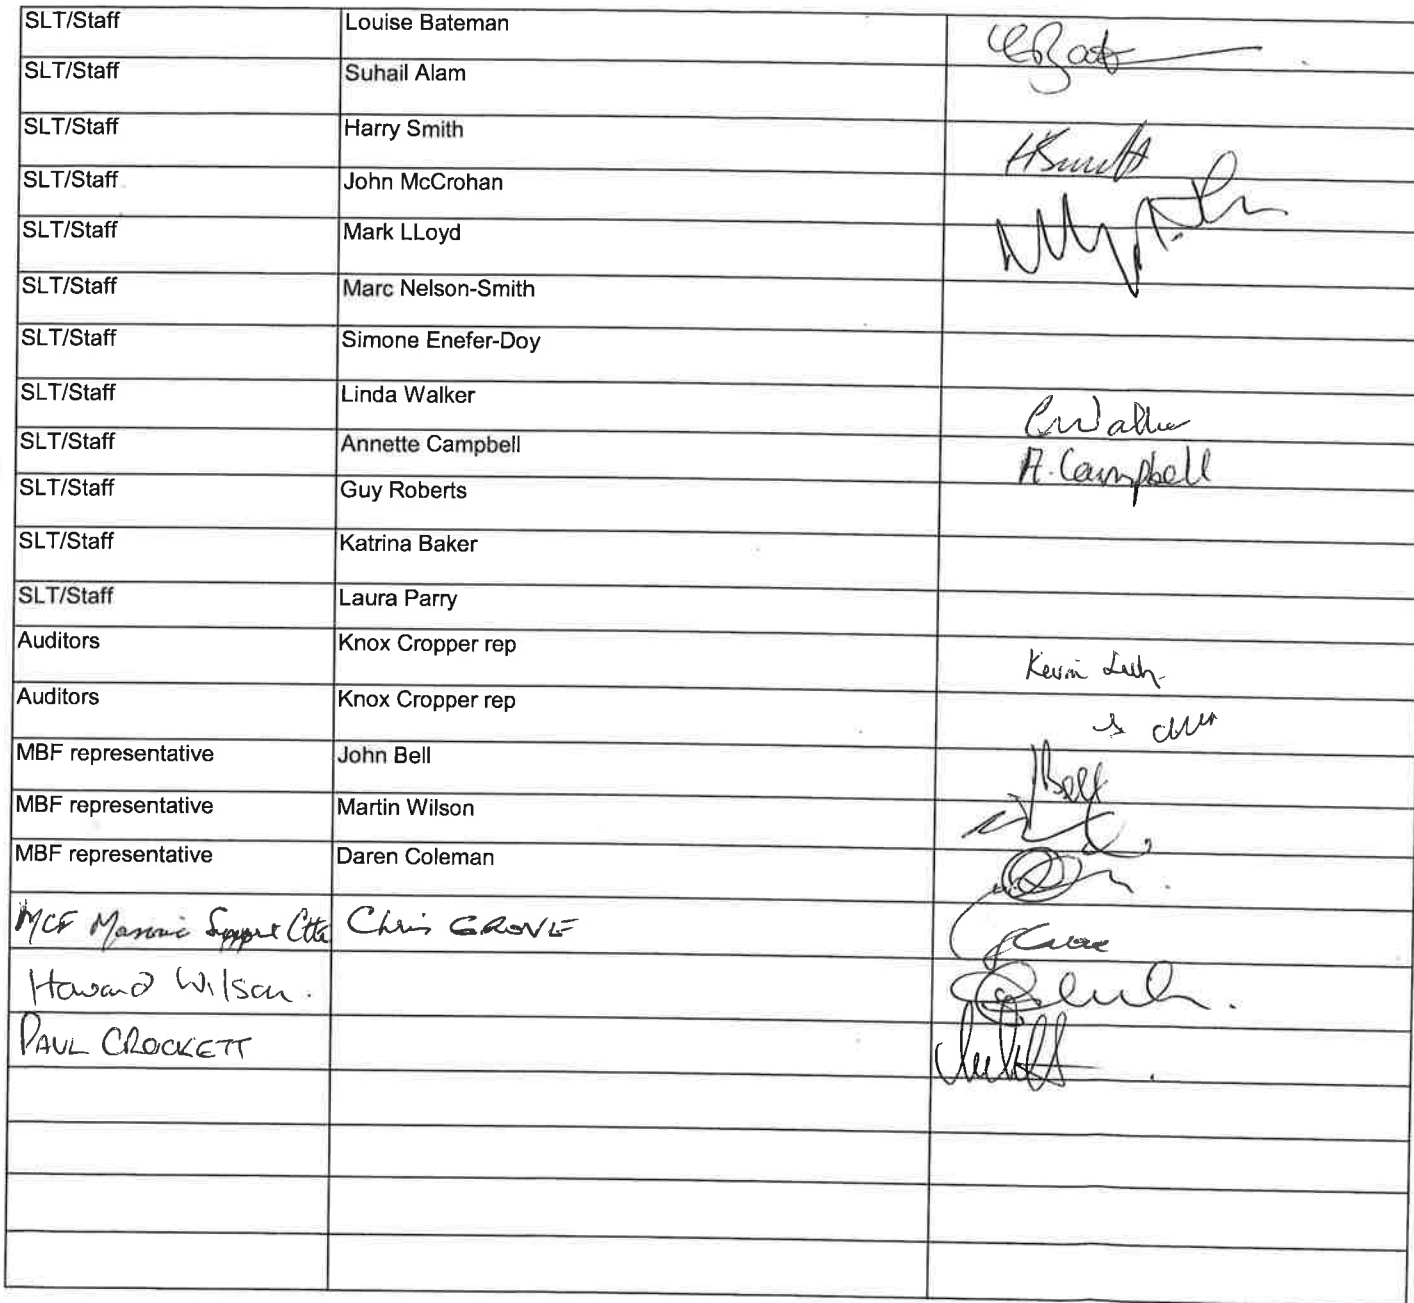 SLT/Staff Louise Bateman
SLT/Staff Suhail Alam
SLT/Staff Harry Smith HSmith
SLT/Staff John McCrohan
SLT/Staff Mark LLoyd
SLT/Staff Marc Nelson-Smith
SLT/Staff Simone Enefer-Doy
SLT/Staff Linda Walker
SLT/Staff Annette Campbell A. Campbell
SLT/Staff Guy Roberts
SLT/Staff Katrina Baker
SLT/Staff Laura Parry
Auditors Knox Cropper rep Kevin
Auditors Knox Cropper rep
MBF representative John Bell JBell
MBF representative Martin Wilson
MBF representative Daren Coleman
MCF Masonic Support Cttee Chris GROVE
Howard Wilson.
PAUL CROCKETT